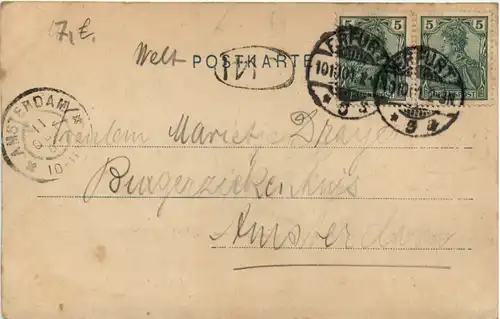 7,E.
Welt POSTKARTE
141
5 5
ERFURT
ERFURT
* 5 s
* 9 *
AMSTERDAM
11
10-11
Fräulein Marietje Drayer
Burgerziekenhuis
Amsterdam